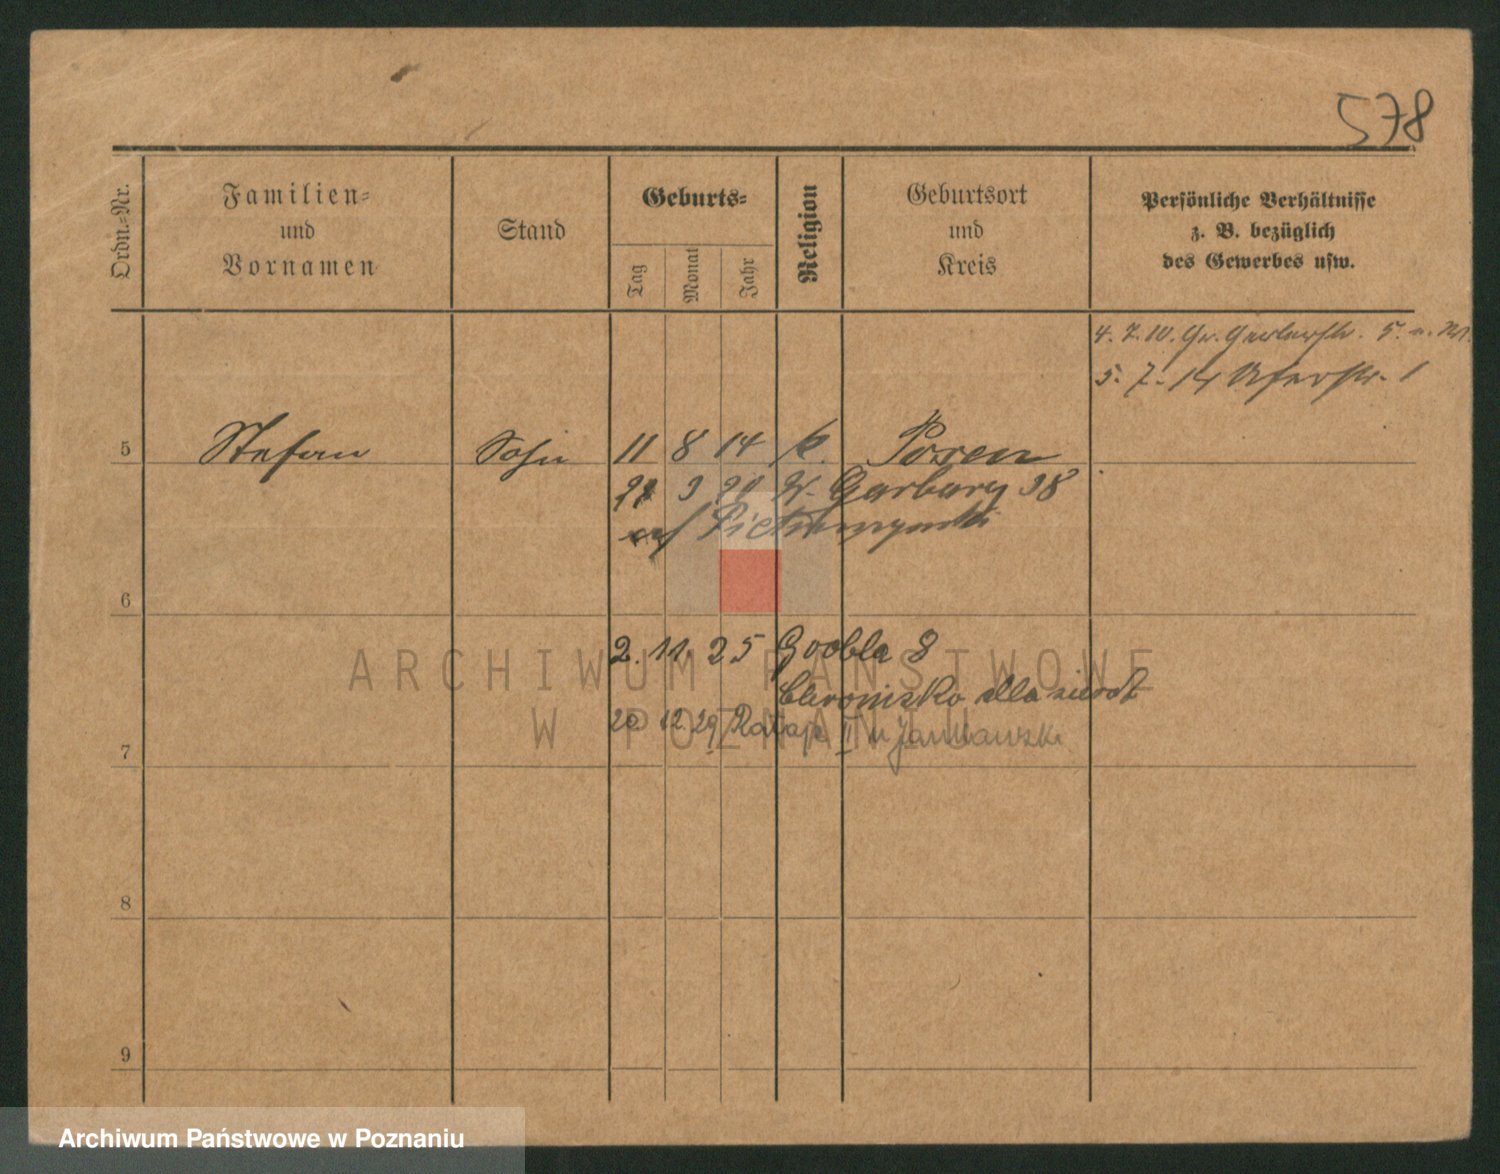 578
Ordn.-Nr.
Familien-
und
Vornamen
Stand
Geburts-
Tag
Monat
Jahr
Religion
Geburtsort
und
Kreis
Persönliche Verhältnisse
z. B. bezüglich
des Gewerbes usw.
4. 7. 10. Gr. Gerberstr. 5.
5. 7. 14 Uferstr. 1
5 Stefan Sohn 11 8 14 k. Posen
9 20 W. Garbary 38
6
2. 11. 25 Grobla 8
dla sierot
20 12. 29 Rataje II u Jankowski
7
8
9
ARCHIWUM PAŃSTWOWE
W POZNANIU
Archiwum Państwowe w Poznaniu